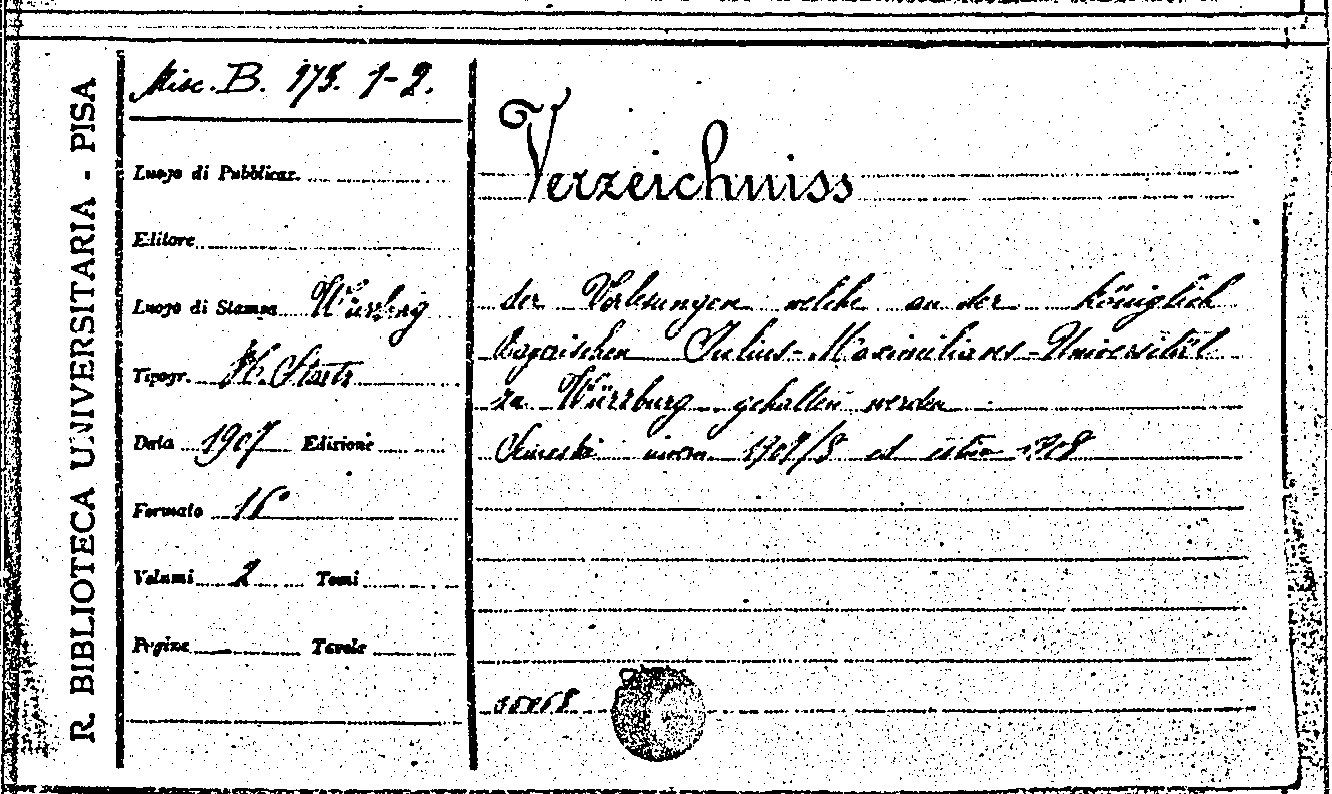 R. BIBLIOTECA UNIVERSITARIA - PISA
Misc. B. 173. 1-2.
Luogo di Pubblicaz.
Editore
Luogo di Stampa Würzburg
Tipogr. H. Stürtz
Data 1907 Edizione
Formato 16°
Volumi 2 Tomi
Pagine Tavole
Verzeichniss
der Vorlesungen welche an der königlich
bayerischen Julius-Maximilians-Universität
zu Würzburg gehalten werden
1907/8 et 1908